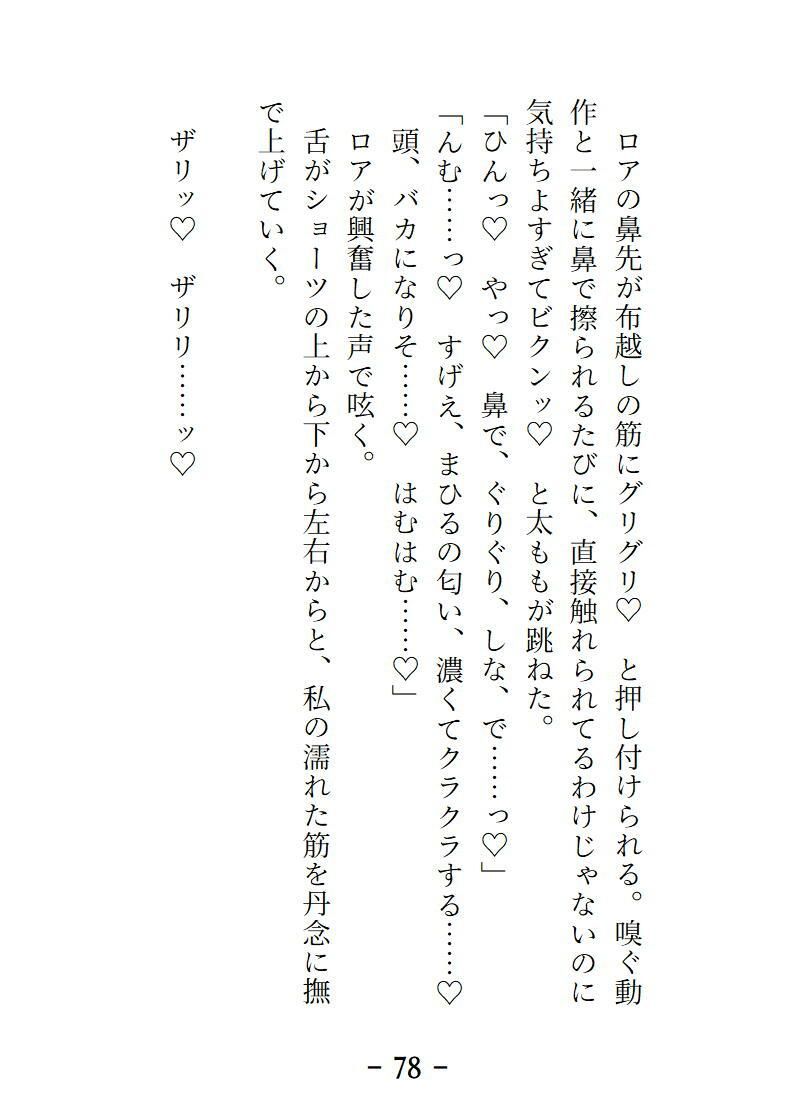 ロアの鼻先が布越しの筋にグリグリ♡　と押し付けられる。嗅ぐ動
作と一緒に鼻で擦られるたびに、直接触れられてるわけじゃないのに
気持ちよすぎてビクンッ♡　と太ももが跳ねた。
「ひんっ♡　やっ♡　鼻で、ぐりぐり、しな、で……っ♡」
「んむ……っ♡　すげえ、まひるの匂い、濃くてクラクラする……♡
頭、バカになりそ……♡　はむはむ……♡」
ロアが興奮した声で呟く。
舌がショーツの上から下から左右からと、私の濡れた筋を丹念に撫
で上げていく。
ザリッ♡　ザリリ……ッ♡
- 78 -